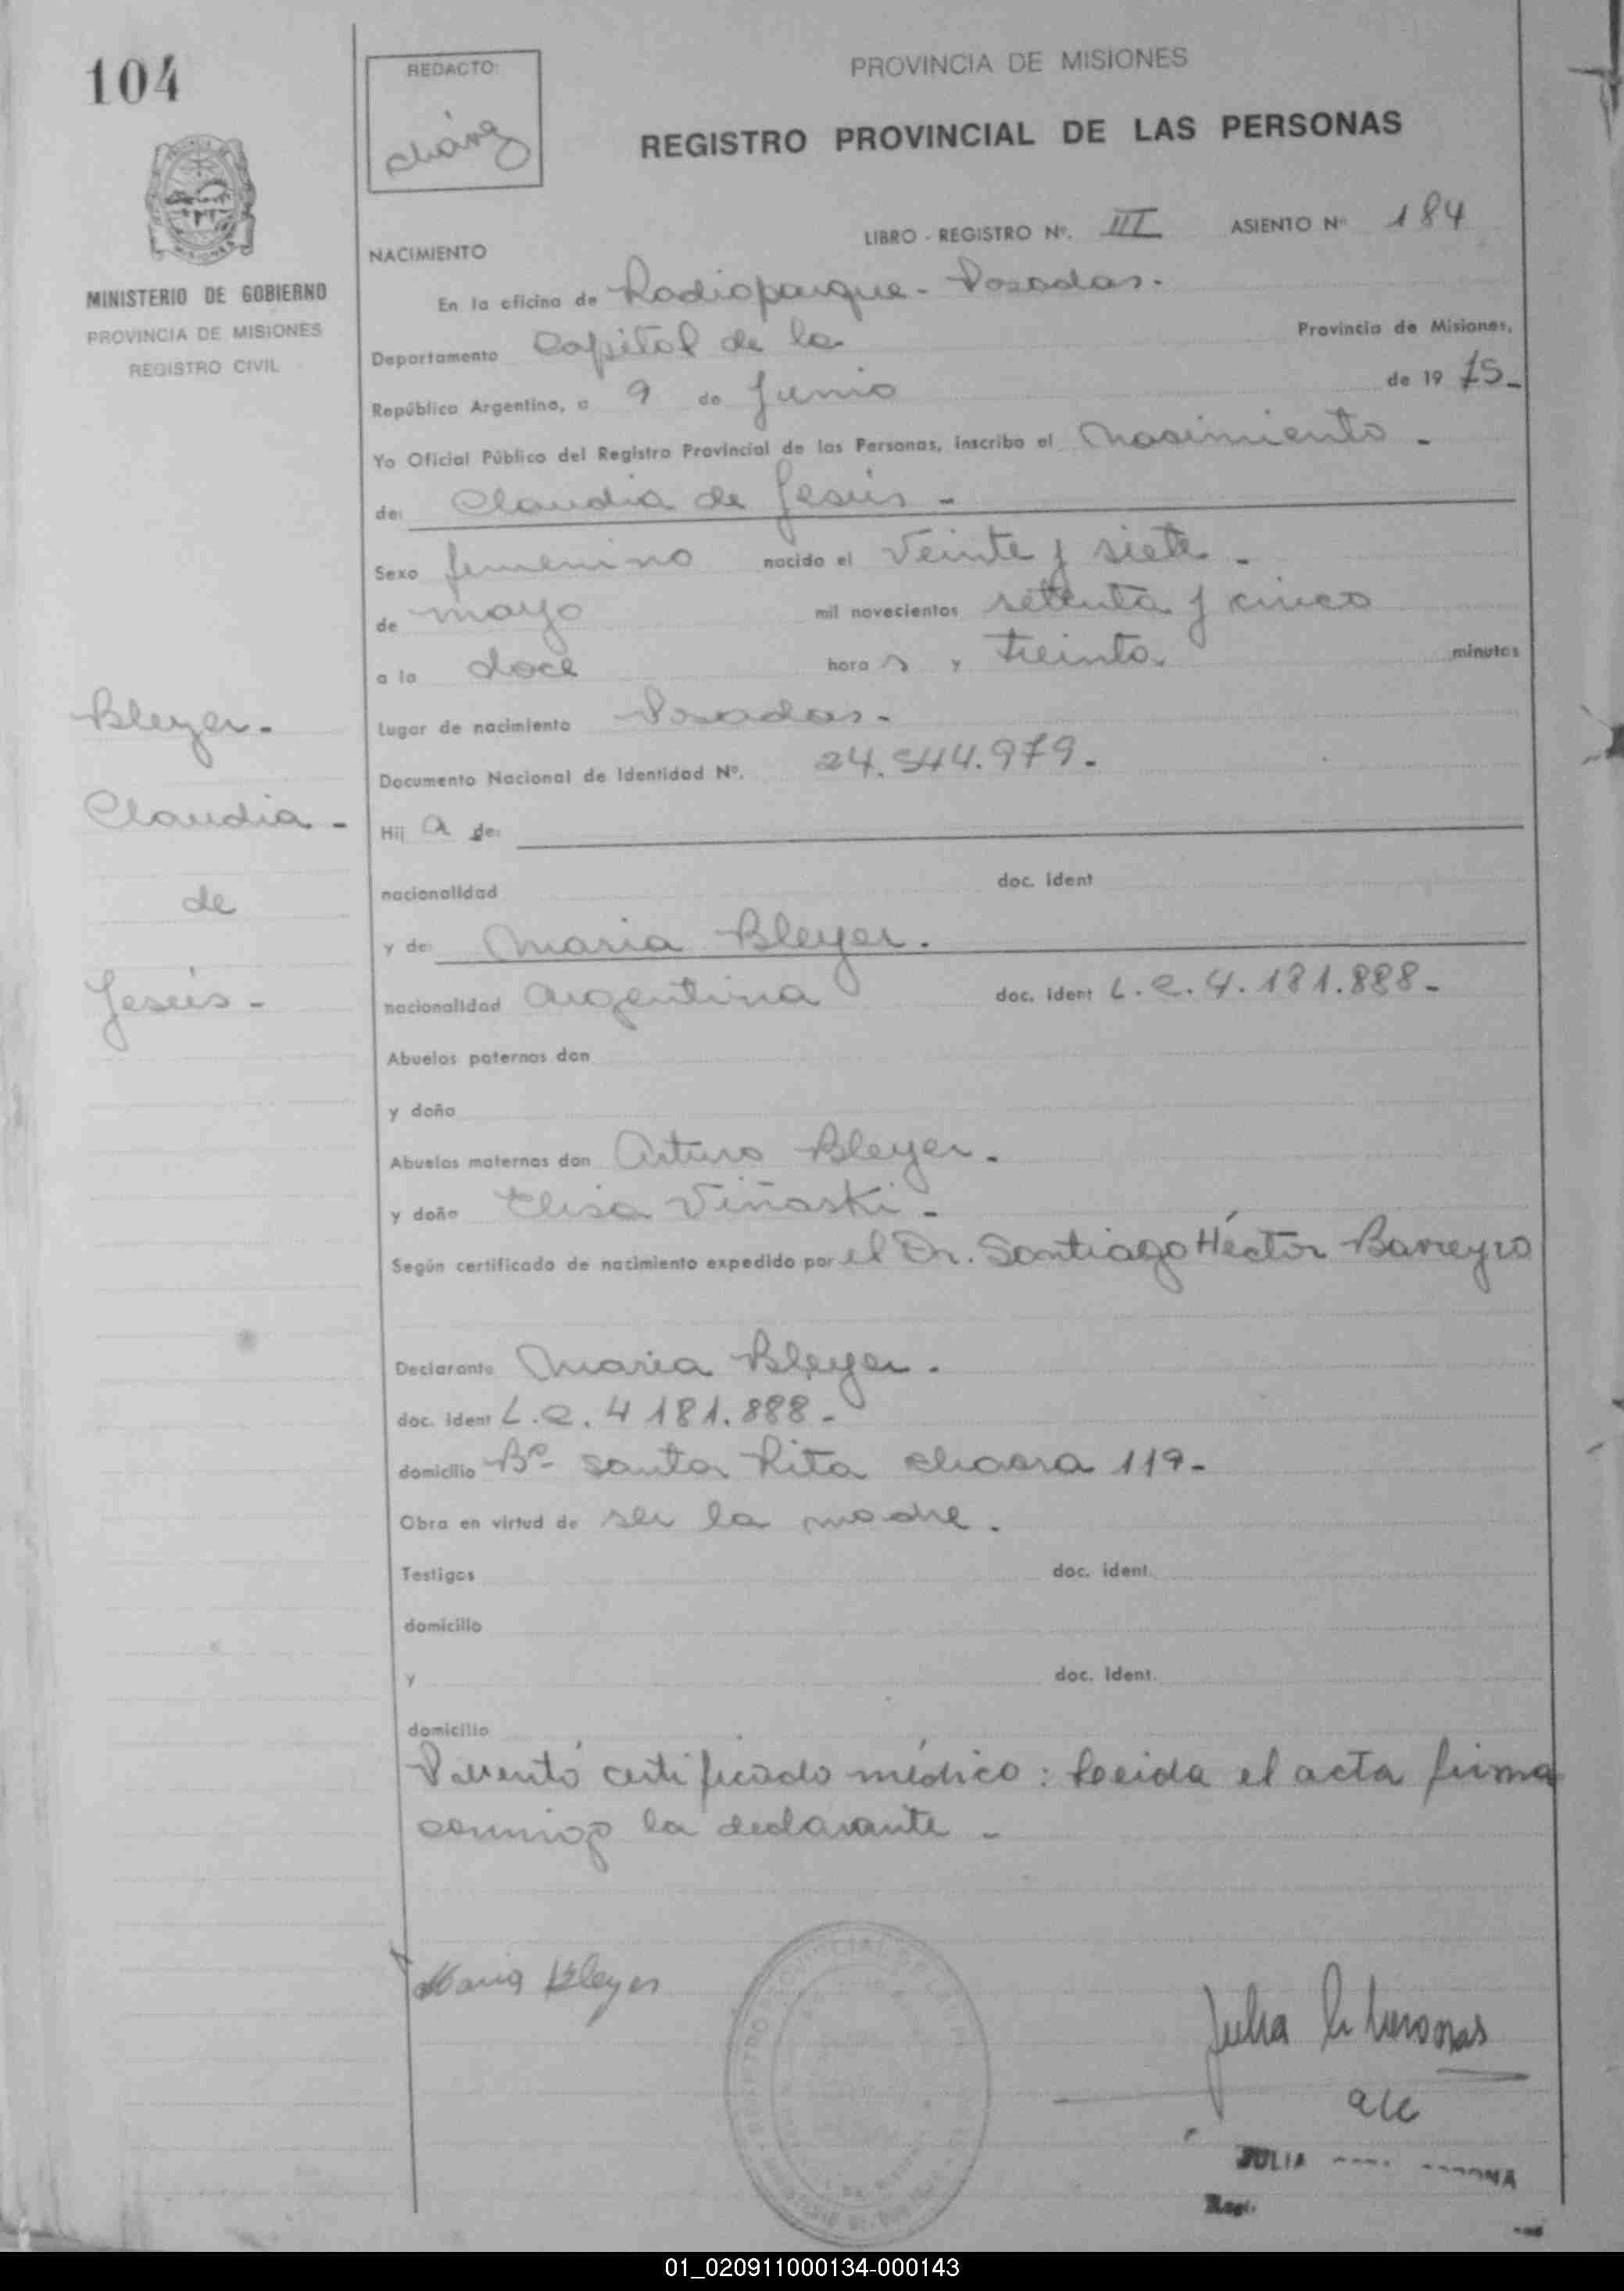 104
REDACTO:
PROVINCIA DE MISIONES
REGISTRO PROVINCIAL DE LAS PERSONAS
LIBRO - REGISTRO Nº. III ASIENTO Nº 184
NACIMIENTO
MINISTERIO DE GOBIERNO
PROVINCIA DE MISIONES
REGISTRO CIVIL
En la oficina de Radioparque - Posadas.
Departamento Capital de la Provincia de Misiones,
República Argentina, a 9 de Junio de 19 75-
Yo Oficial Público del Registro Provincial de las Personas, inscribo el Nacimiento -
de: Claudia de Jesús -
Sexo femenino nacido el Veinte y siete -
de mayo mil novecientos setenta y cinco
a la doce hora s y treinta minutos
Lugar de nacimiento Posadas.
Documento Nacional de Identidad Nº. 24.544.979.
Bleyer-
Claudia -
de
Jesús -
Hij a de:
nacionalidad doc. ident
y de: Maria Bleyer.
nacionalidad Argentina doc. ident L.C. 4.181.888-
Abuelos paternos don
y doña
Abuelos maternos don Arturo Bleyer.
y doña Elisa Viñaski -
Según certificado de nacimiento expedido por el Dr. Santiago Héctor Barreyro
Declarante Maria Bleyer.
doc. ident L.C. 4 181.888-
domicilio Bº Santa Rita chacra 119-
Obra en virtud de ser la madre.
Testigos doc. ident.
domicilio
y doc. ident.
domicilio
Presentó certificado médico: Leída el acta firma
conmigo la declarante -
Maria Bleyer
Julia
JULIA
01_020911000134-000143